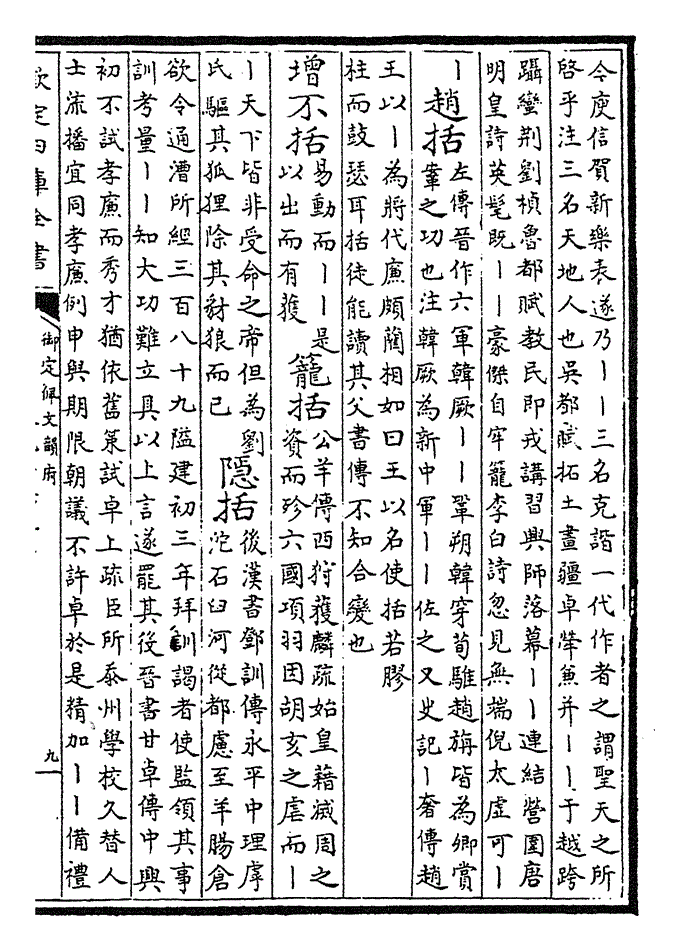 今庾信賀新樂表遂乃丨丨三名克諧一代作者之謂聖天之所
啓乎注三名天地人也吳都賦拓土畫疆卓犖兼并丨丨于越跨
躡蠻荆劉楨魯都賦教民即戎講習興師落幕丨丨連結營圍唐
明皇詩英髦既丨丨豪傑自牢籠李白詩忽見無端倪太虛可丨
丨
趙括
左傳晉作六軍韓厥丨丨鞏朔韓穿荀騅趙旃皆為卿賞
鞌之功也注韓厥為新中軍丨丨佐之又史記丨奢傳趙
王以丨為將代廉頗藺相如曰王以名使括若膠
柱而鼓瑟耳括徒能讀其父書傳不知合變也
增不括
易動而丨丨是
以出而有獲
籠括
公羊傳西狩獲麟疏始皇藉滅周之
資而殄六國項羽因胡亥之虐而丨
丨天下皆非受命之帝但為劉
氏驅其狐狸除其豺狼而已
隱括
後漢書鄧訓傳永平中理虖
沱石臼河從都慮至羊腸倉
欲令通漕所經三百八十九隘建初三年拜訓謁者使監領其事
訓考量丨丨知大功難立具以上言遂罷其後晉書甘卓傳中興
初不試孝廉而秀才猶依舊策試卓上疏臣所忝州學校久替人
士流播宜同孝廉例申與期限朝議不許卓於是精加丨丨備禮
欽定四庫全書
御定佩文韻府
九